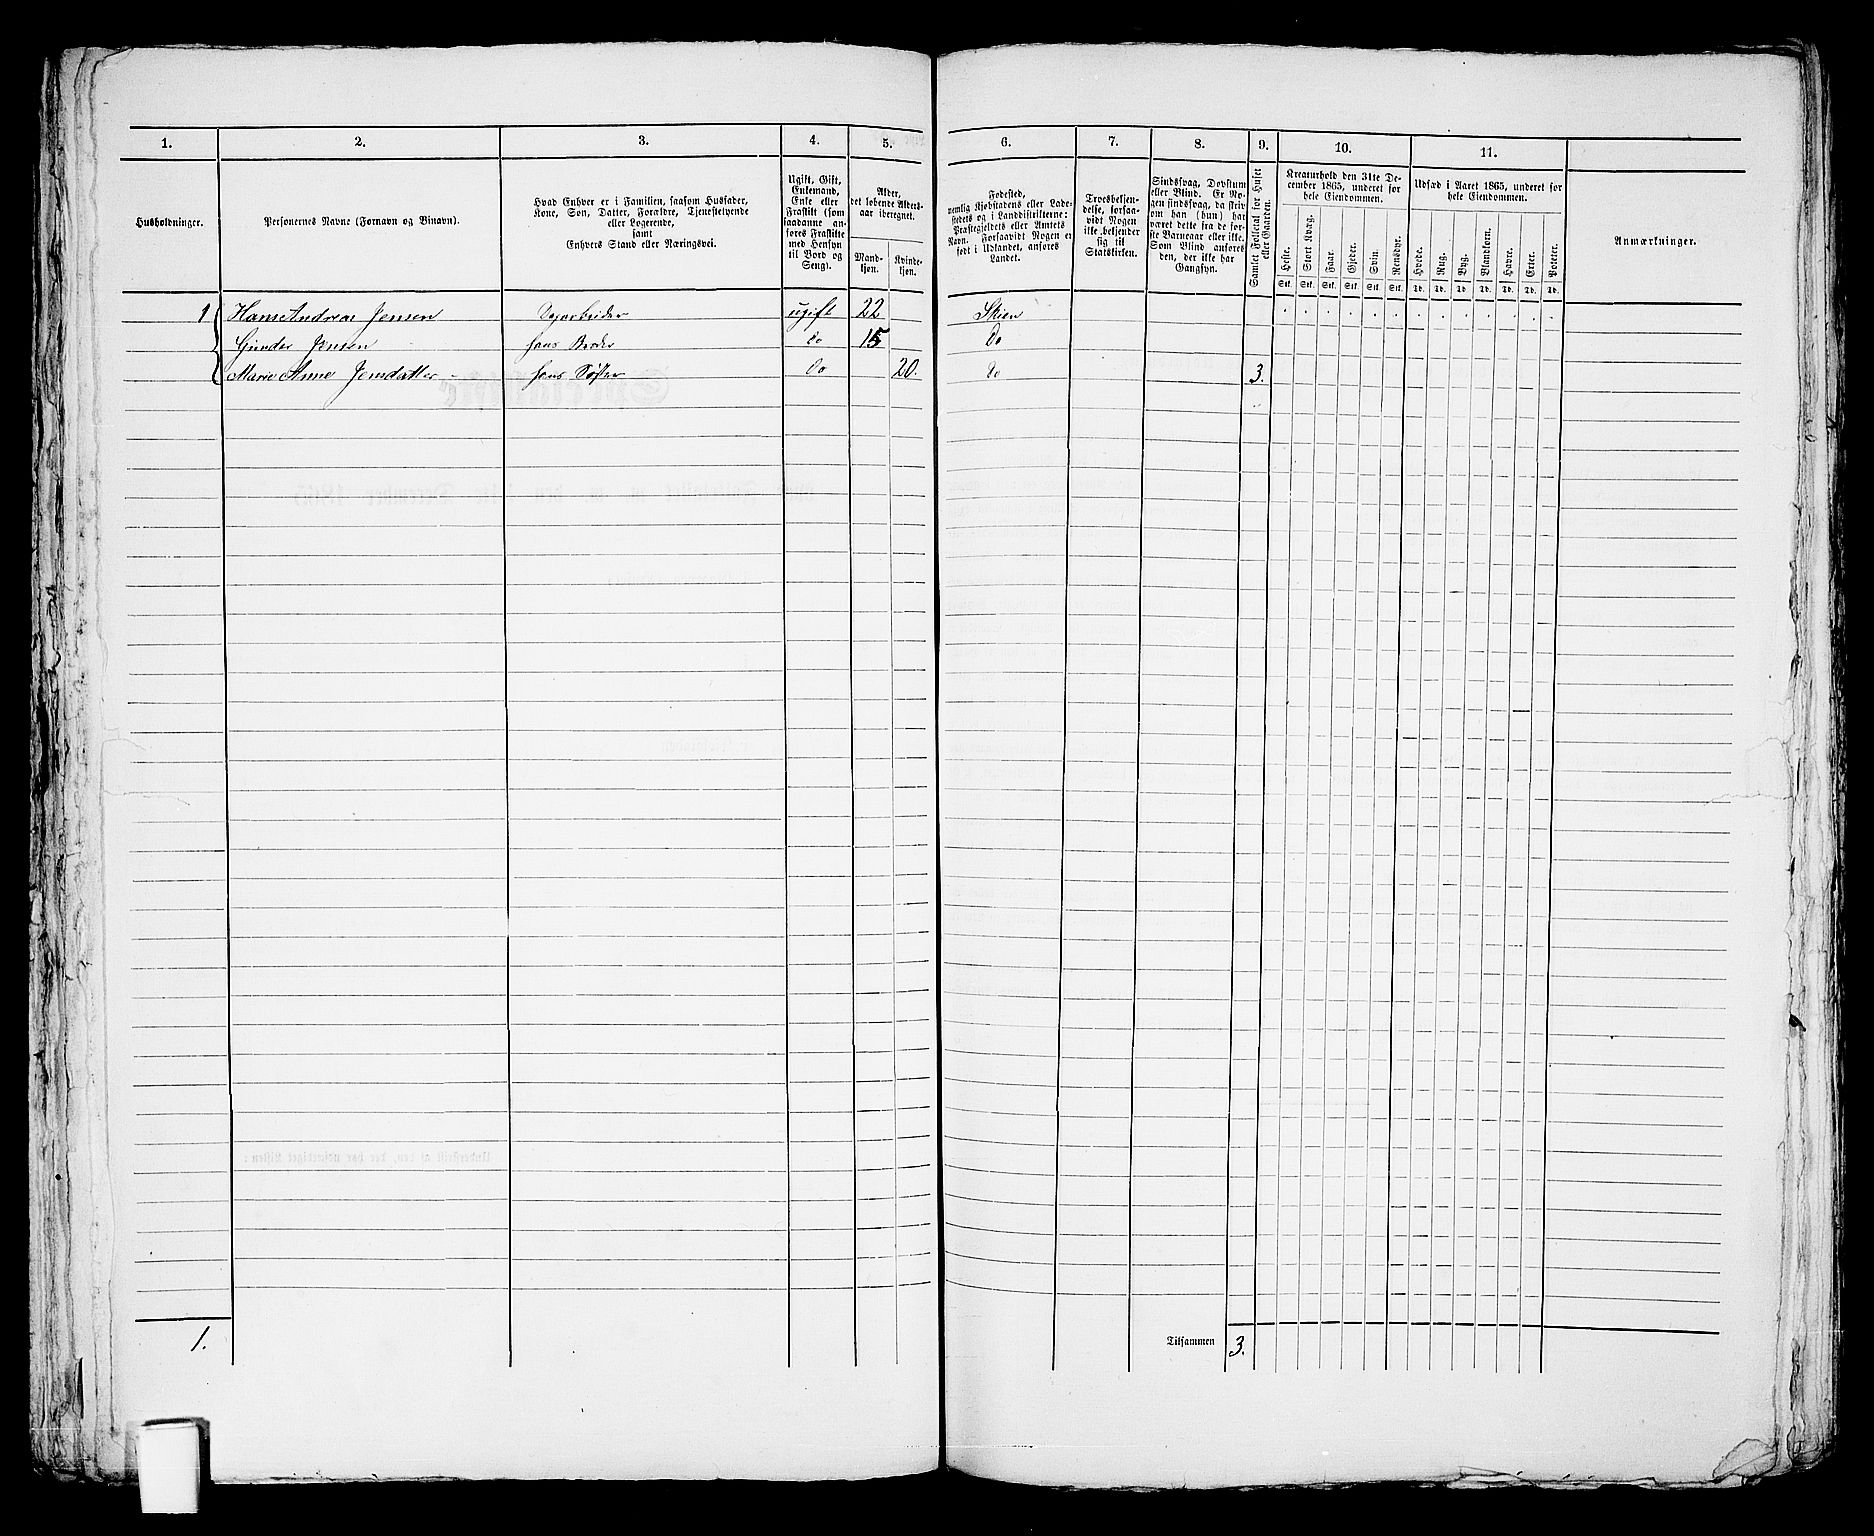 1. 2. 3. 4. 5. 6. 7. 8. 9. 10. 11.
Husholdninger.
Personernes Navne (Fornavn og Binavn).
Hvad Enhver er i Familien, saasom Husfader,
Kone, Søn, Datter, Forældre, Tjenestetyende
eller Logerende,
samt
Enhvers Stand eller Næringsvei.
Ugift, Gift,
Enkemand,
Enke eller
Fraskilt (som
saadanne an-
føres Fraskilte
med Hensyn
til Bord og
Seng).
Alder,
det løbende Alders-
aar iberegnet.
Mand-
kjøn.
Kvinde-
kjøn.
Fødested,
nemlig Kjøbstadens eller Lade-
stedets og i Landdistrikterne:
Præstegjeldets eller Amtets
Navn. Forsaavidt Nogen er
født i Udlandet, anføres
Landet.
Troesbekjen-
delse, forsaa-
vidt Nogen
ikke bekjender
sig til
Statskirken.
Sindssvag, Døvstum
eller Blind. Er No-
gen sindssvag, da skriv
om han (hun) har
været dette fra de før-
ste Barneaar eller ikke.
Som Blind anføres
den, der ikke har
Gangsyn.
Samlet Folketal for Huset
eller Gaarden.
Kreaturhold den 31te De-
cember 1865, underet for
hele Eiendommen.
Heste.
Stort Kvæg.
Faar.
Gjeder.
Svin.
Rensdyr.
Stk. Stk. Stk. Stk. Stk. Stk.
Udsæd i Aaret 1865, underet for
hele Eiendommen.
Hvede.
Rug.
Byg.
Blandkorn.
Havre.
Erter.
Poteter.
Td. Td. Td. Td. Td. Td. Td.
Anmærkninger.
1 Hans Andreas Jensen Vejarbeider ugift 22 Skien
Gunder Jensen hans Broder do 15 Do
Marie Anne Jensdatter hans Søster do 20. do 3.
1. Tilsammen 3.